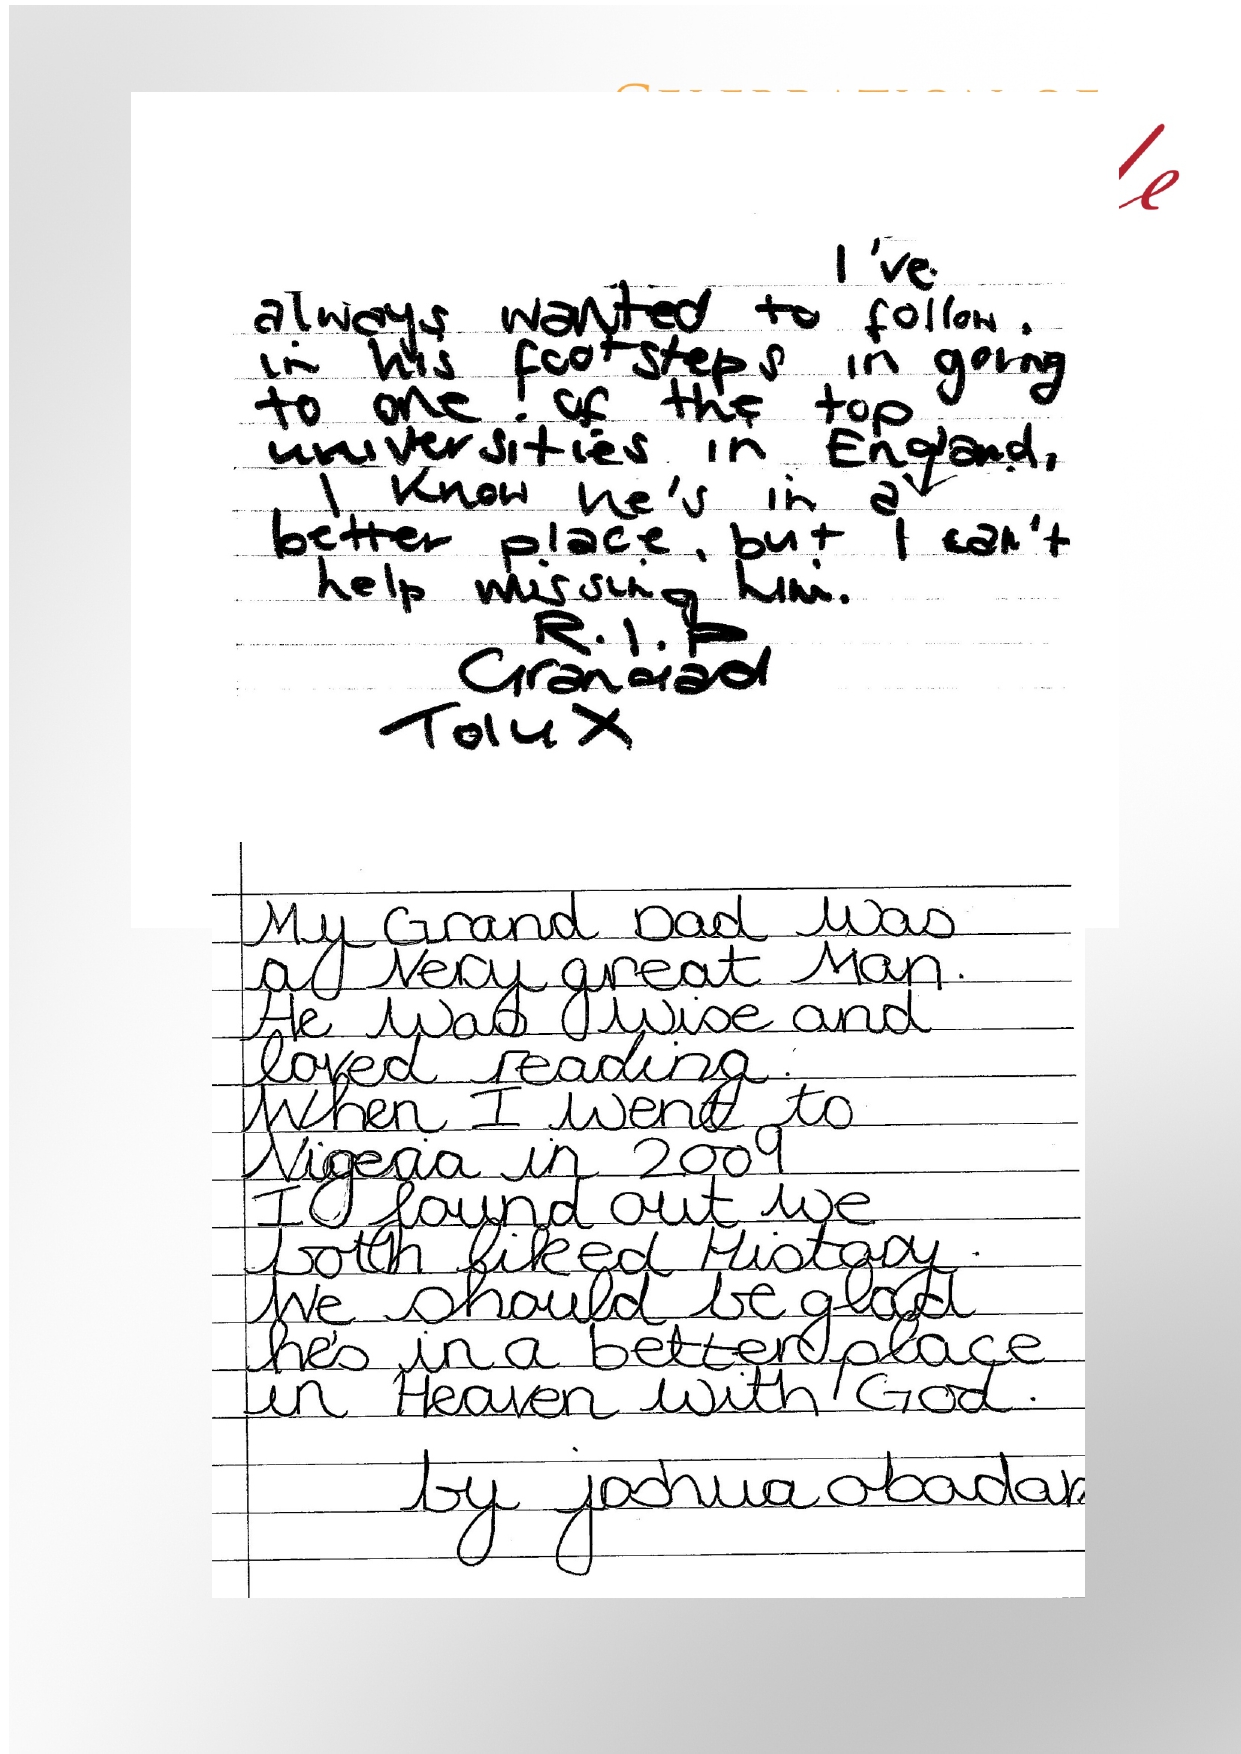 I've
always wanted to follow.
in his footsteps in going
to one of the top
universities in England,
I know he's in a
better place, but I can't
help missing him.
R.I.P
Grandad
Tolu X
My Grand Dad was
a very great Man.
He was wise and
loved reading.
When I went to
Nigeria in 2009
I found out we
both liked History.
We should be glad
he's in a better place
in Heaven with God.
by joshua obadan